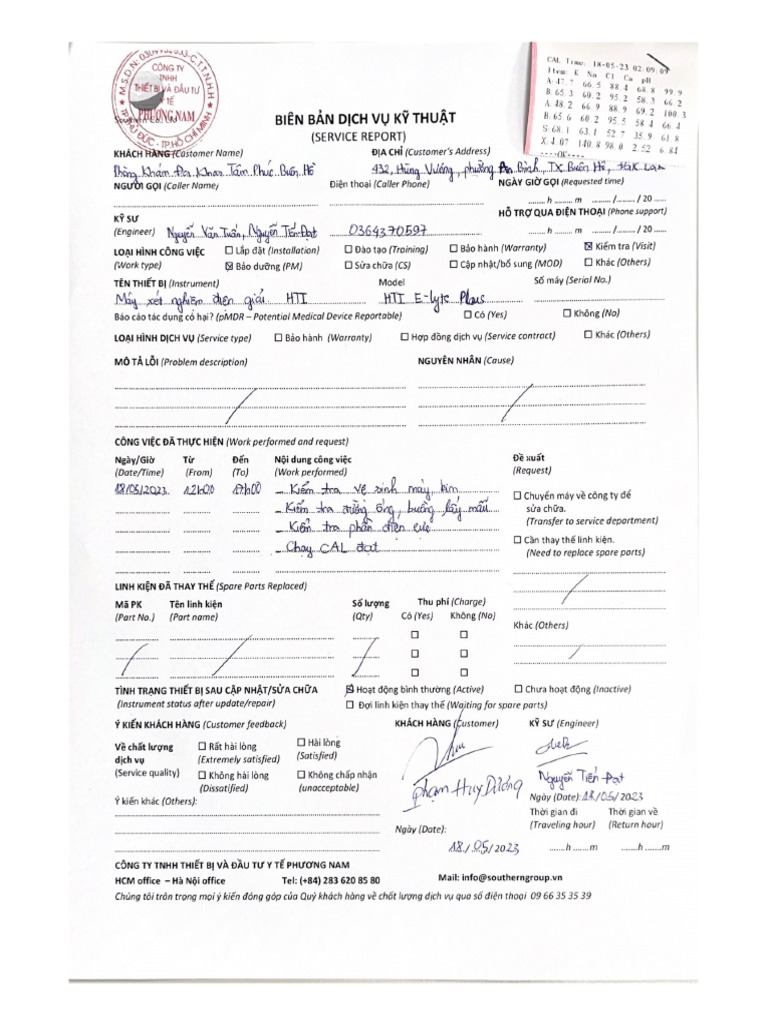 M.S.D.N: 0309932633-C.T.T.N.H.H
CÔNG TY
TNHH
THIẾT BỊ VÀ ĐẦU TƯ
Y TẾ
PHƯƠNG NAM
TP.THỦ ĐỨC - TP.HỒ CHÍ MINH
CAL Time: 18-05-23 02:09:09
Item: K Na Cl Ca pH
A.47.7 66.5 88.4 68.8 99.9
B.65.3 60.2 95.2 58.3 66.2
A.48.2 66.9 88.9 69.2 100.3
B.65.6 60.2 95.5 58.4 66.4
S:68.1 63.1 52.7 35.9 61.8
X:4.07 140.8 98.0 2.52 6.84
----OK----
BIÊN BẢN DỊCH VỤ KỸ THUẬT
(SERVICE REPORT)
KHÁCH HÀNG (Customer Name) ĐỊA CHỈ (Customer's Address)
Phòng Khám Đa Khoa Tâm Phúc Buôn Hồ 432, Hùng Vương, phường An Bình, TX Buôn Hồ,
NGƯỜI GỌI (Caller Name) Điện thoại (Caller Phone) NGÀY GIỜ GỌI (Requested time)
h m / / 20
KỸ SƯ HỖ TRỢ QUA ĐIỆN THOẠI (Phone support)
(Engineer) Nguyễn Văn Tuấn, Nguyễn Tiến Đạt 0364370597 h m / / 20
LOẠI HÌNH CÔNG VIỆC ☐ Lắp đặt (Installation) ☐ Đào tạo (Training) ☐ Bảo hành (Warranty) ☒ Kiểm tra (Visit)
(Work type) ☒ Bảo dưỡng (PM) ☐ Sửa chữa (CS) ☐ Cập nhật/bổ sung (MOD) ☐ Khác (Others)
TÊN THIẾT BỊ (Instrument) Model Số máy (Serial No.)
Máy xét nghiệm điện giải HTI HTI E-lyte Plus
Báo cáo tác dụng có hại? (pMDR – Potential Medical Device Reportable) ☐ Có (Yes) ☐ Không (No)
LOẠI HÌNH DỊCH VỤ (Service type) ☐ Bảo hành (Warranty) ☐ Hợp đồng dịch vụ (Service contract) ☐ Khác (Others)
MÔ TẢ LỖI (Problem description) NGUYÊN NHÂN (Cause)
CÔNG VIỆC ĐÃ THỰC HIỆN (Work performed and request)
Ngày/Giờ Từ Đến Nội dung công việc Đề xuất
(Date/Time) (From) (To) (Work performed) (Request)
18/05/2023 12h00 17h00 - Kiểm tra vệ sinh máy, kim
- Kiểm tra đường ống, buồng lấy mẫu
- Kiểm tra phần điện cực
- Chạy CAL đạt
☐ Chuyển máy về công ty để
sửa chữa.
(Transfer to service department)
☐ Cần thay thế linh kiện.
(Need to replace spare parts)
LINH KIỆN ĐÃ THAY THẾ (Spare Parts Replaced)
Mã PK Tên linh kiện Số lượng Thu phí (Charge)
(Part No.) (Part name) (Qty) Có (Yes) Không (No)
Khác (Others)
TÌNH TRẠNG THIẾT BỊ SAU CẬP NHẬT/SỬA CHỮA ☒ Hoạt động bình thường (Active) ☐ Chưa hoạt động (Inactive)
(Instrument status after update/repair) ☐ Đợi linh kiện thay thế (Waiting for spare parts)
Ý KIẾN KHÁCH HÀNG (Customer feedback) KHÁCH HÀNG (Customer) KỸ SƯ (Engineer)
Về chất lượng ☐ Rất hài lòng ☐ Hài lòng
dịch vụ (Extremely satisfied) (Satisfied)
(Service quality) ☐ Không hài lòng ☐ Không chấp nhận
(Dissatified) (unacceptable)
Phạm Huy Dương
Nguyễn Tiến Đạt
Ý kiến khác (Others): Ngày (Date): 18/05/2023
Thời gian đi Thời gian về
(Traveling hour) (Return hour)
Ngày (Date):
18/05/2023 h m h m
CÔNG TY TNHH THIẾT BỊ VÀ ĐẦU TƯ Y TẾ PHƯƠNG NAM
HCM office – Hà Nội office Tel: (+84) 283 620 85 80 Mail: info@southerngroup.vn
Chúng tôi trân trọng mọi ý kiến đóng góp của Quý khách hàng về chất lượng dịch vụ qua số điện thoại 09 66 35 35 39